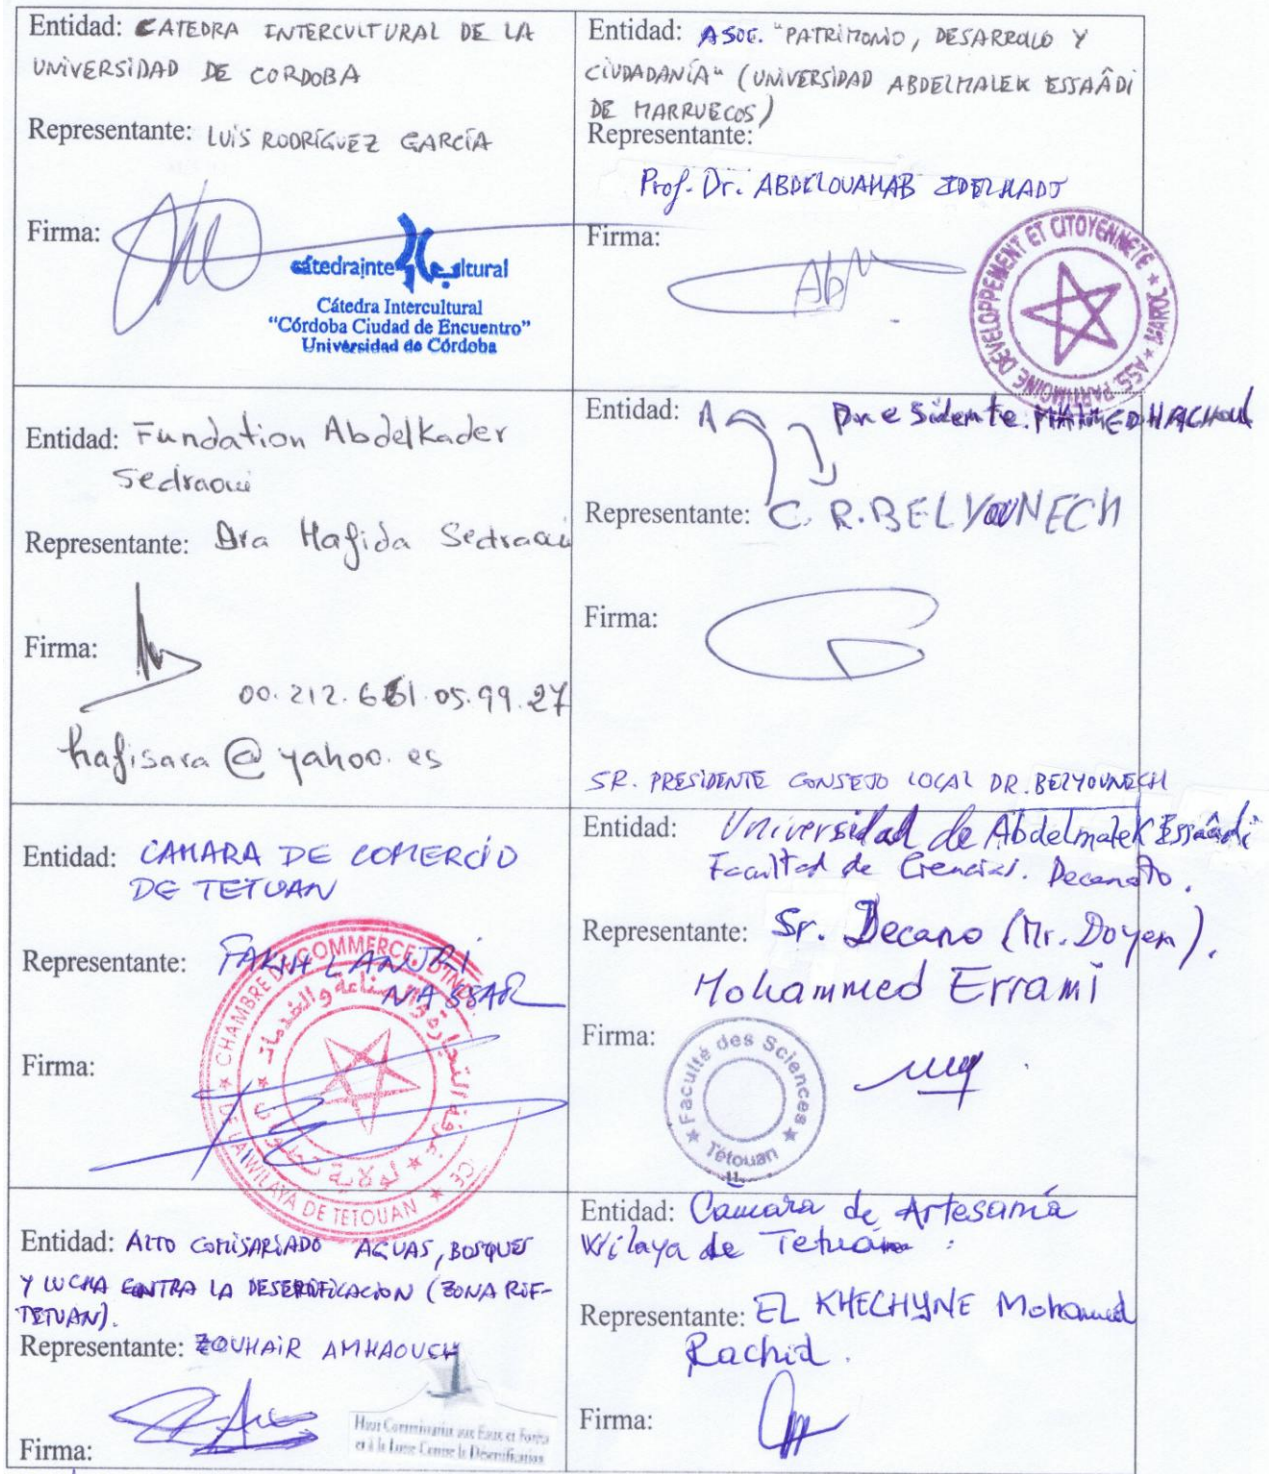 Entidad: CATEDRA INTERCULTURAL DE LA
UNIVERSIDAD DE CORDOBA
Representante: LUIS RODRÍGUEZ GARCÍA
Firma:
Cátedra Intercultural
"Córdoba Ciudad de Encuentro"
Universidad de Córdoba
Entidad: ASOC. "PATRIMONIO, DESARROLLO Y
CIUDADANÍA" (UNIVERSIDAD ABDELMALEK ESSAÂDI
DE MARRUECOS)
Representante:
Prof. Dr. ABDELOUAHAB IDELHADJ
Firma:
★ ASS. PATRIMOINE DÉVELOPPEMENT ET CITOYENNETÉ ★ MAROC
Entidad: Fundation Abdelkader
Sedraoui
Representante: Dra Hafida Sedraoui
Firma:
00.212.661.05.99.27
hafisara@yahoo.es
Entidad: A Presidente
Representante: C. R. BELYOUNECH
Firma:
SR. PRESIDENTE CONSEJO LOCAL DR. BELYOUNECH
Entidad: CAMARA DE COMERCIO
DE TETUAN
Representante: FAKIH LANJRI
NASSAR
Firma:
★ CHAMBRE DE COMMERCE, D'IND
DE LA WILAYA DE TETOUAN ★
غرفة التجارة والصناعة والخدمات
لولاية تطوان
Entidad: Universidad de Abdelmalek Essaâdi
Facultad de Ciencias. Decanato.
Representante: Sr. Decano (Mr. Doyen).
Mohammed Errami
Firma:
★ Faculté des Sciences ★
Tétouan
Entidad: ALTO COMISARIADO AGUAS, BOSQUES
Y LUCHA CONTRA LA DESERTIFICACION (ZONA RIF-
TETUAN).
Representante: ZOUHAIR AMHAOUCH
Firma:
Haut Commissariat aux Eaux et Forêts
et à la Lutte Contre la Désertification
Entidad: Camara de Artesanía
Wilaya de Tetuán.
Representante: EL KHECHYNE Mohamed
Rachid.
Firma: